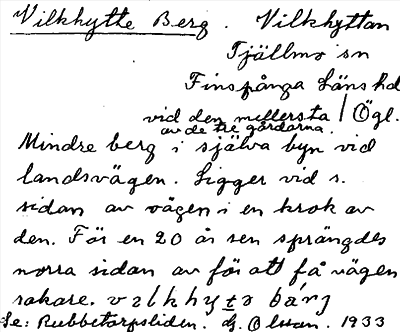 Vilkhytte Berg. Vilkhyttan
Tjällmo sn
Finspånga Läns hd
vid den mellersta / Ögl.
av de tre gårdarna.
Mindre berg i själva byn vid
landsvägen. Ligger vid s.
sidan av vägen i en krok av
den. För en 20 år sen sprängdes
norra sidan av för att få vägen
rakare. vilkhyto bárj
Se: Rubbetorpsliden. G. Olsson. 1933